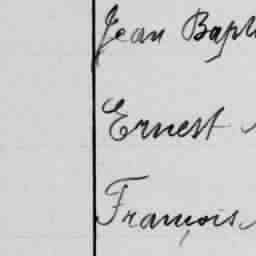 Jean Bapt
Ernest
François